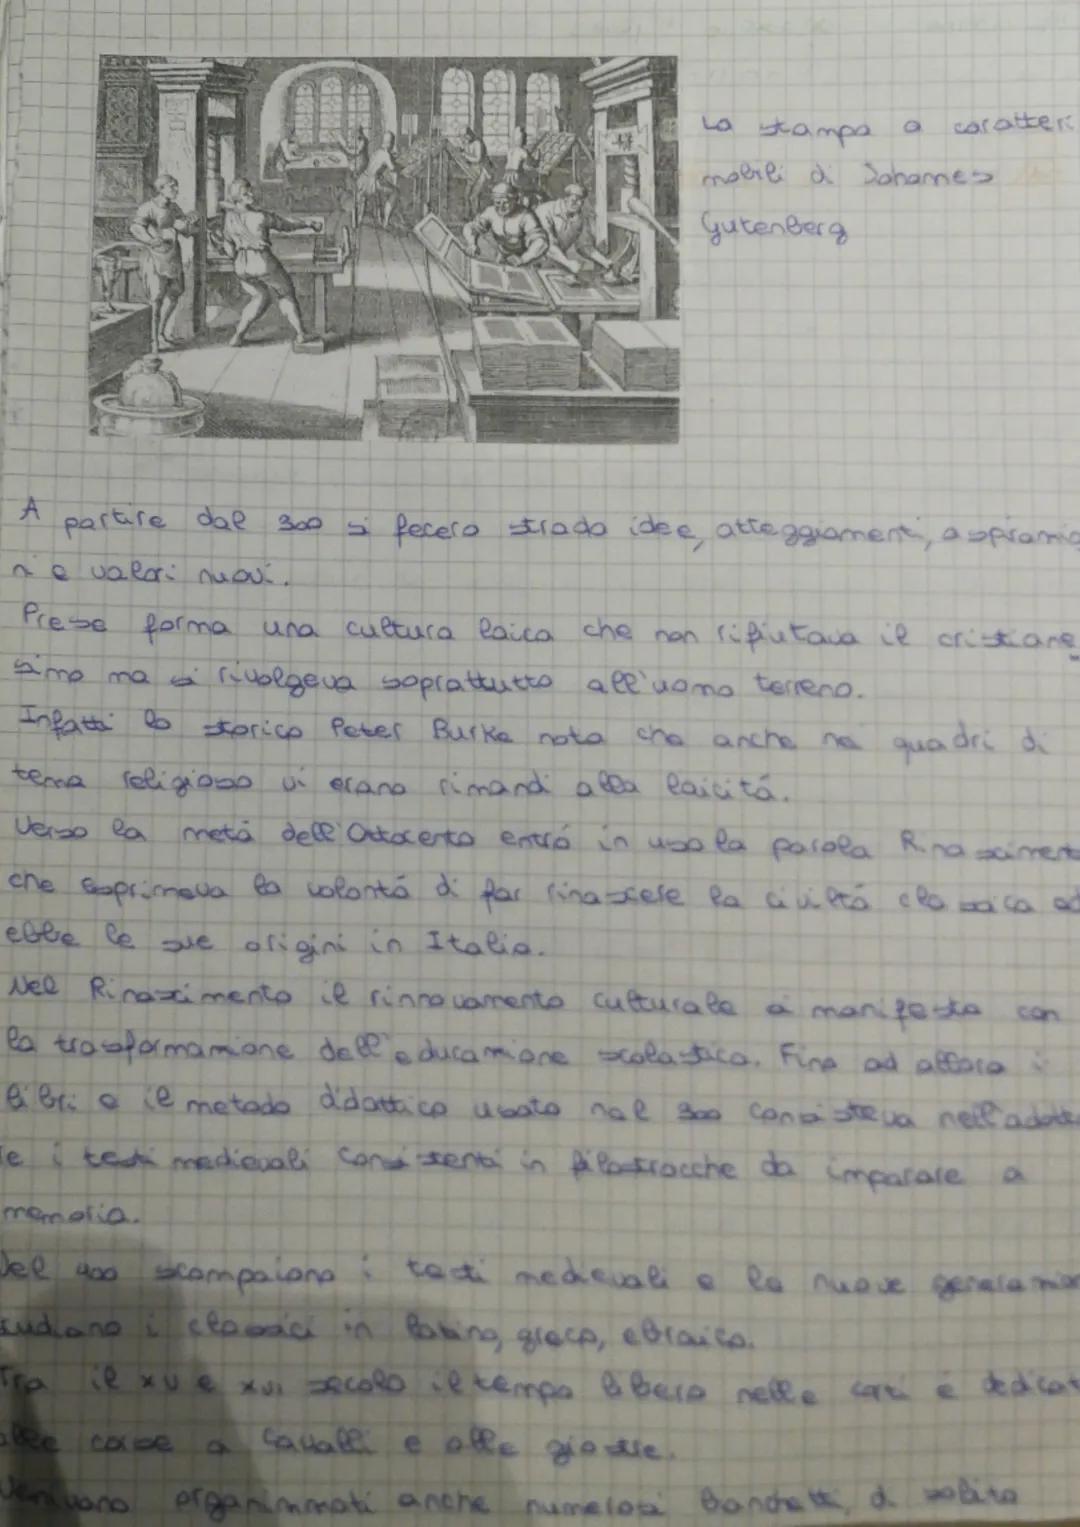 La stampa a caratteri
mobili di Johannes
Gutenberg
A partire dal 300 si fecero strada idee, atteggiamenti, aspirazio
ni e valori nuovi.
Prese forma una cultura laica che non rifiutava il cristiane
simo ma si rivolgeva soprattutto all'uomo terreno.
Infatti lo storico Peter Burke nota che anche ne quadri di
tema religioso vi erano rimandi alla laicitá.
Verso la metá dell'Ottocento entró in uso la parola Rinasciment
che esprimeva la volontá di far rinascere la civiltá classica ed
ebbe le sue origini in Italia.
Nel Rinascimento il rinnovamento culturale si manifesta con
la trasformazione dell'educazione scolastica. Fino ad allora i
libri e il metodo didattico usato nel 300 consisteva nell'adotta
re i testi medievali consistenti in filastrocche da imparare a
memoria.
Nel 400 scompaiono i testi medievali e le nuove generazion
studiano i classici in latino, greco, ebraico.
Tra il XV e XVI secolo il tempo libero nelle corti é dedicat
alle corse a cavalli e alle giostre.
Venivano organizzati anche numerosi banchetti, di solito